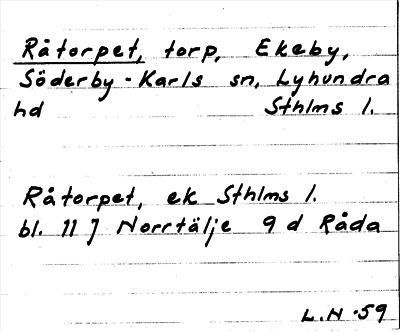 Råtorpet, torp, Ekeby,
Söderby-Karls sn, Lyhundra
hd Sthlms l.
Råtorpet, ek Sthlms l.
bl. 11 J Norrtälje 9 d Råda
L.N -59